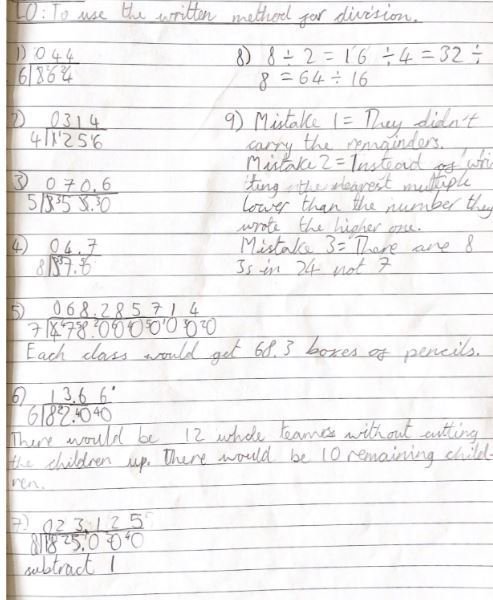 LO: To use the written method for division.
1) 044
6|8 2 6 2 4
2) 0314
4|1 1 2 5 1 6
3) 070.6
5|3 3 5 3.3 0
4) 04.7
8|3 3 7.5 6
5) 068.285714
7|4 4 7 5 8.2 0 6 0 4 0 5 0 1 0 3 0 2 0
Each class would get 68.3 boxes of pencils.
6) 13.66
6|8 2 2.4 0 4 0
There would be 12 whole teames without cutting
the children up. There would be 10 remaining child-
ren.
7) 023.125
8|1 1 8 2 5.1 0 2 0 4 0
subtract 1
8) 8 ÷ 2 = 16 ÷ 4 = 32 ÷
8 = 64 ÷ 16
9) Mistake 1 = They didn't
carry the remainders.
Mistake 2 = Instead of wri
ting the nearest multiple
lower than the number they
wrote the higher one.
Mistake 3 = There are 8
3s in 24 not 7